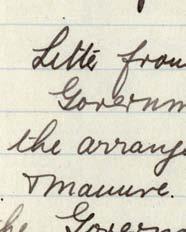 Letter from
Governm
the arrange
& manure.
the Governo